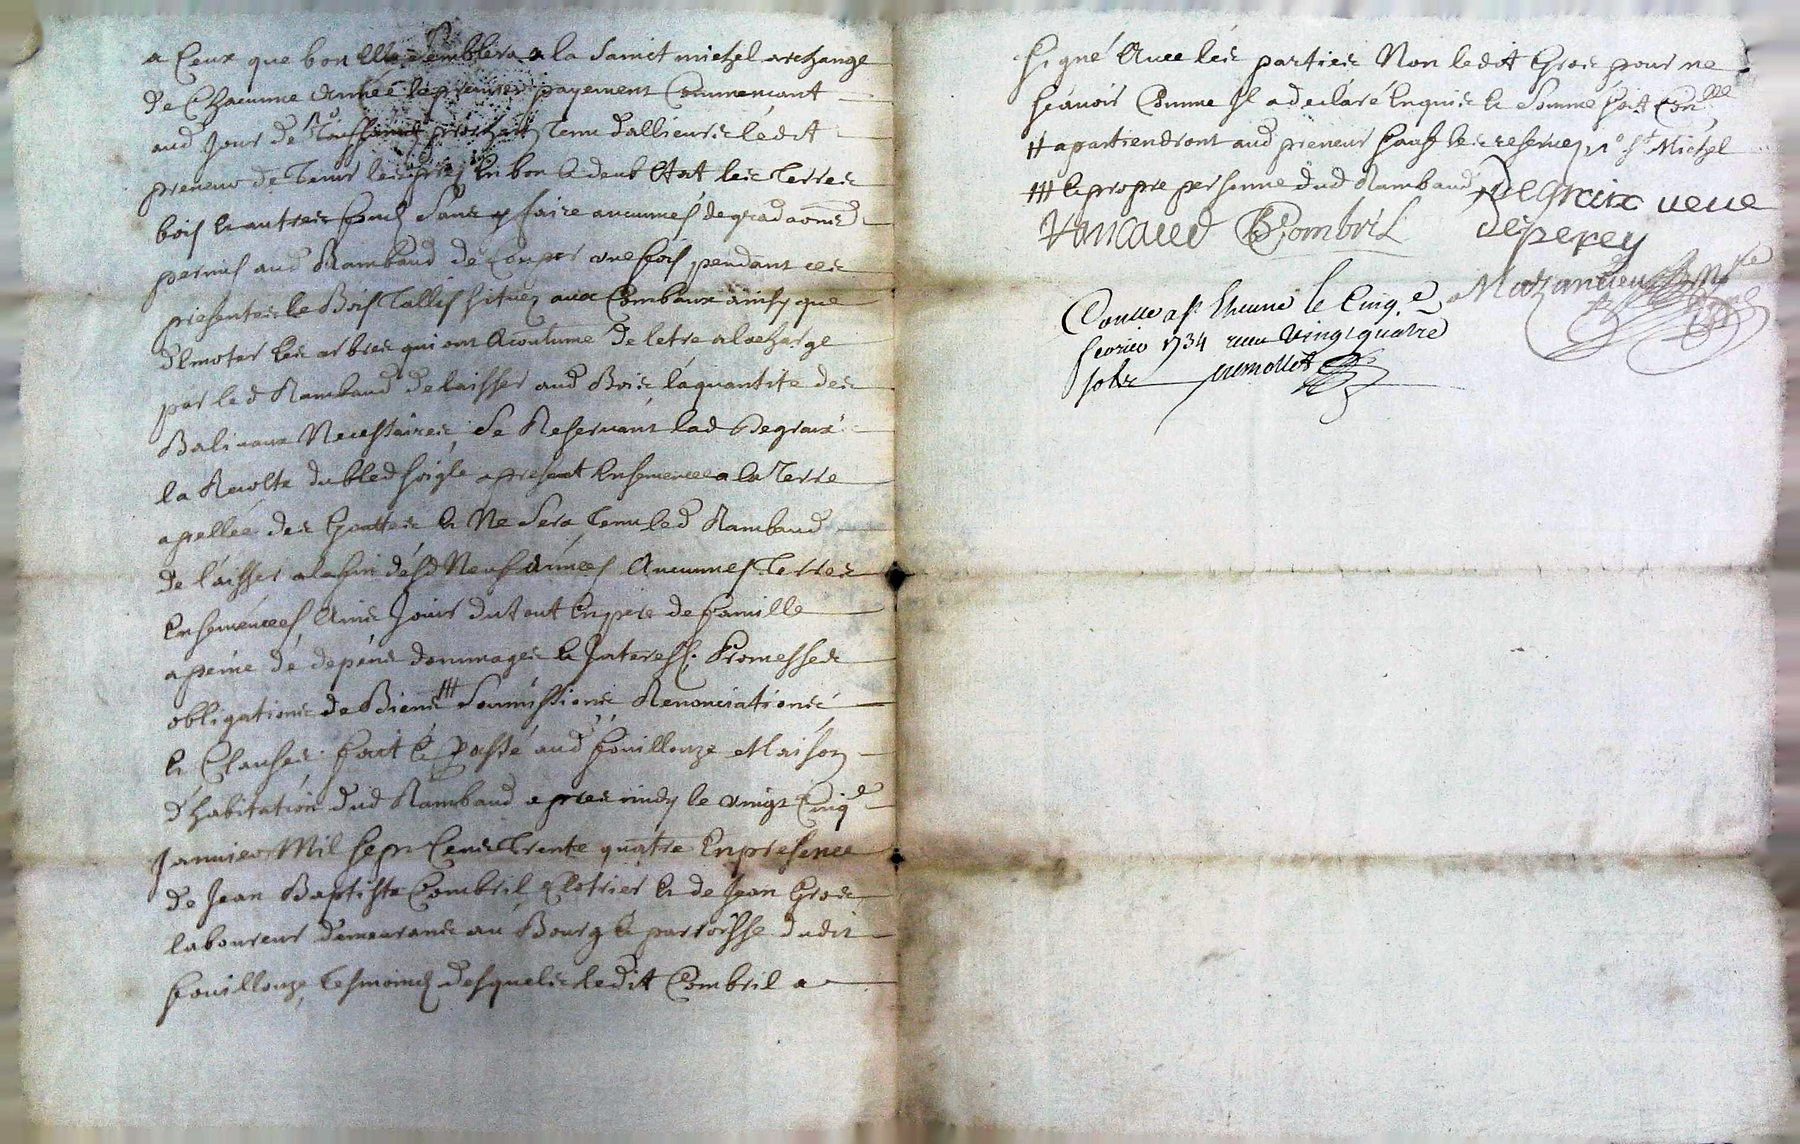 a Ceux que bon Elle semblera a la Sainct michel archange
de Chacunne Année le premier payement Commencant
aud Jour de prochain Tenu dallieurs ledit
preneur de Tenir les En bon & deub Etat les Terres
bois & autres fonds Sans y faire aucunnes degradaons
permis aud Rambaud de Couper une fois pendant ces
presentes le Bois Tallis situez aux Combaux ainsy que
dEmoter les arbres qui ont Acoutume de letre a la charge
par led Rambaud de laisser aud Bois la quantite des
Balivaux Necessaires, Se Reservant lad Degraix
la Recolte du bled soigle apresent Ensemencee a la Terre
apellée des Gouttes & Ne Sera Tenu led Rambaud
de laisser a la fin desd Neuf années Aucunnes Terres
Ensemencees Ains Jouir du tout En pere de famille
a peine de depens dommages & Interest. Promesses
obligations de Biens ### Soumissions Renonciations
& Clauses. fait & Passé aud fouillouze Maison
d'habitation dud Rambaud apres midy le vingt Cinqe
Janvier Mil sept Cens Trente quatre En presence
de Jean Baptiste Combril Clotrier & de Jean Gros
laboureur demeurans au Bourg & parroisse dudit
fouillouze Tesmoins desquels ledit Combril a
signé Avec les parties Non ledit Gros pour ne
scavoir Comme Il a declaré Enquis & Somme soit Conlle
# apartiendront aud preneur sauf les reserves St Michel
### la propre personne dud Rambaud
Degraix veve
Combril deperey
le Cinqe
fevrier 1734 receu vingt quatre
sols